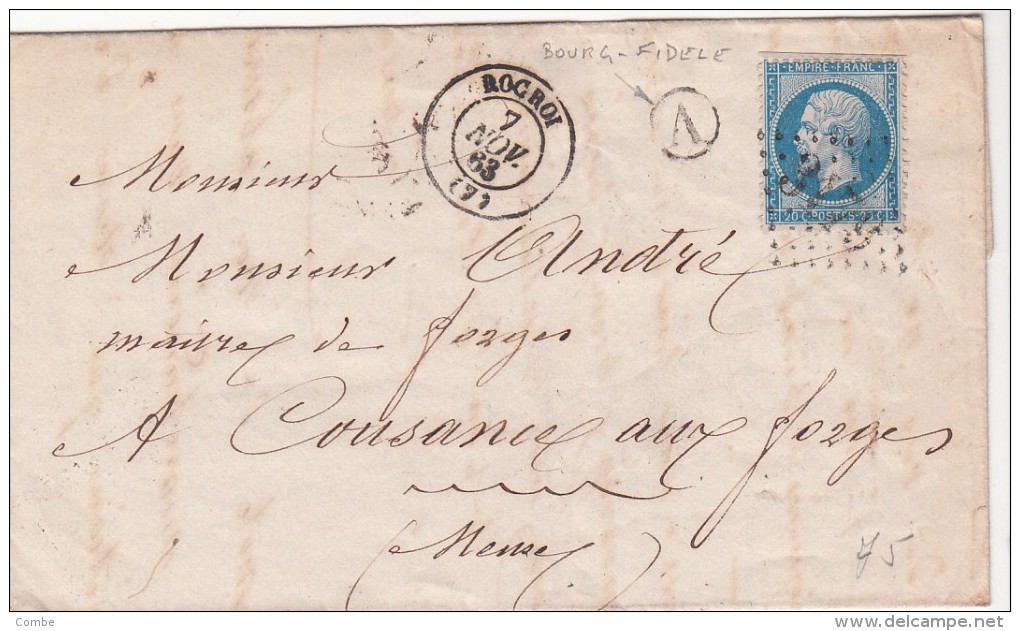 BOURG-FIDELE
ROCROI
7
NOV.
63
(7)
A
EMPIRE FRANC
20 C POSTES 20 C
Monsieur
Monsieur André
maitre de forges
A Cousances aux forges
(Meuse)
75
Combe
www.delcampe.net